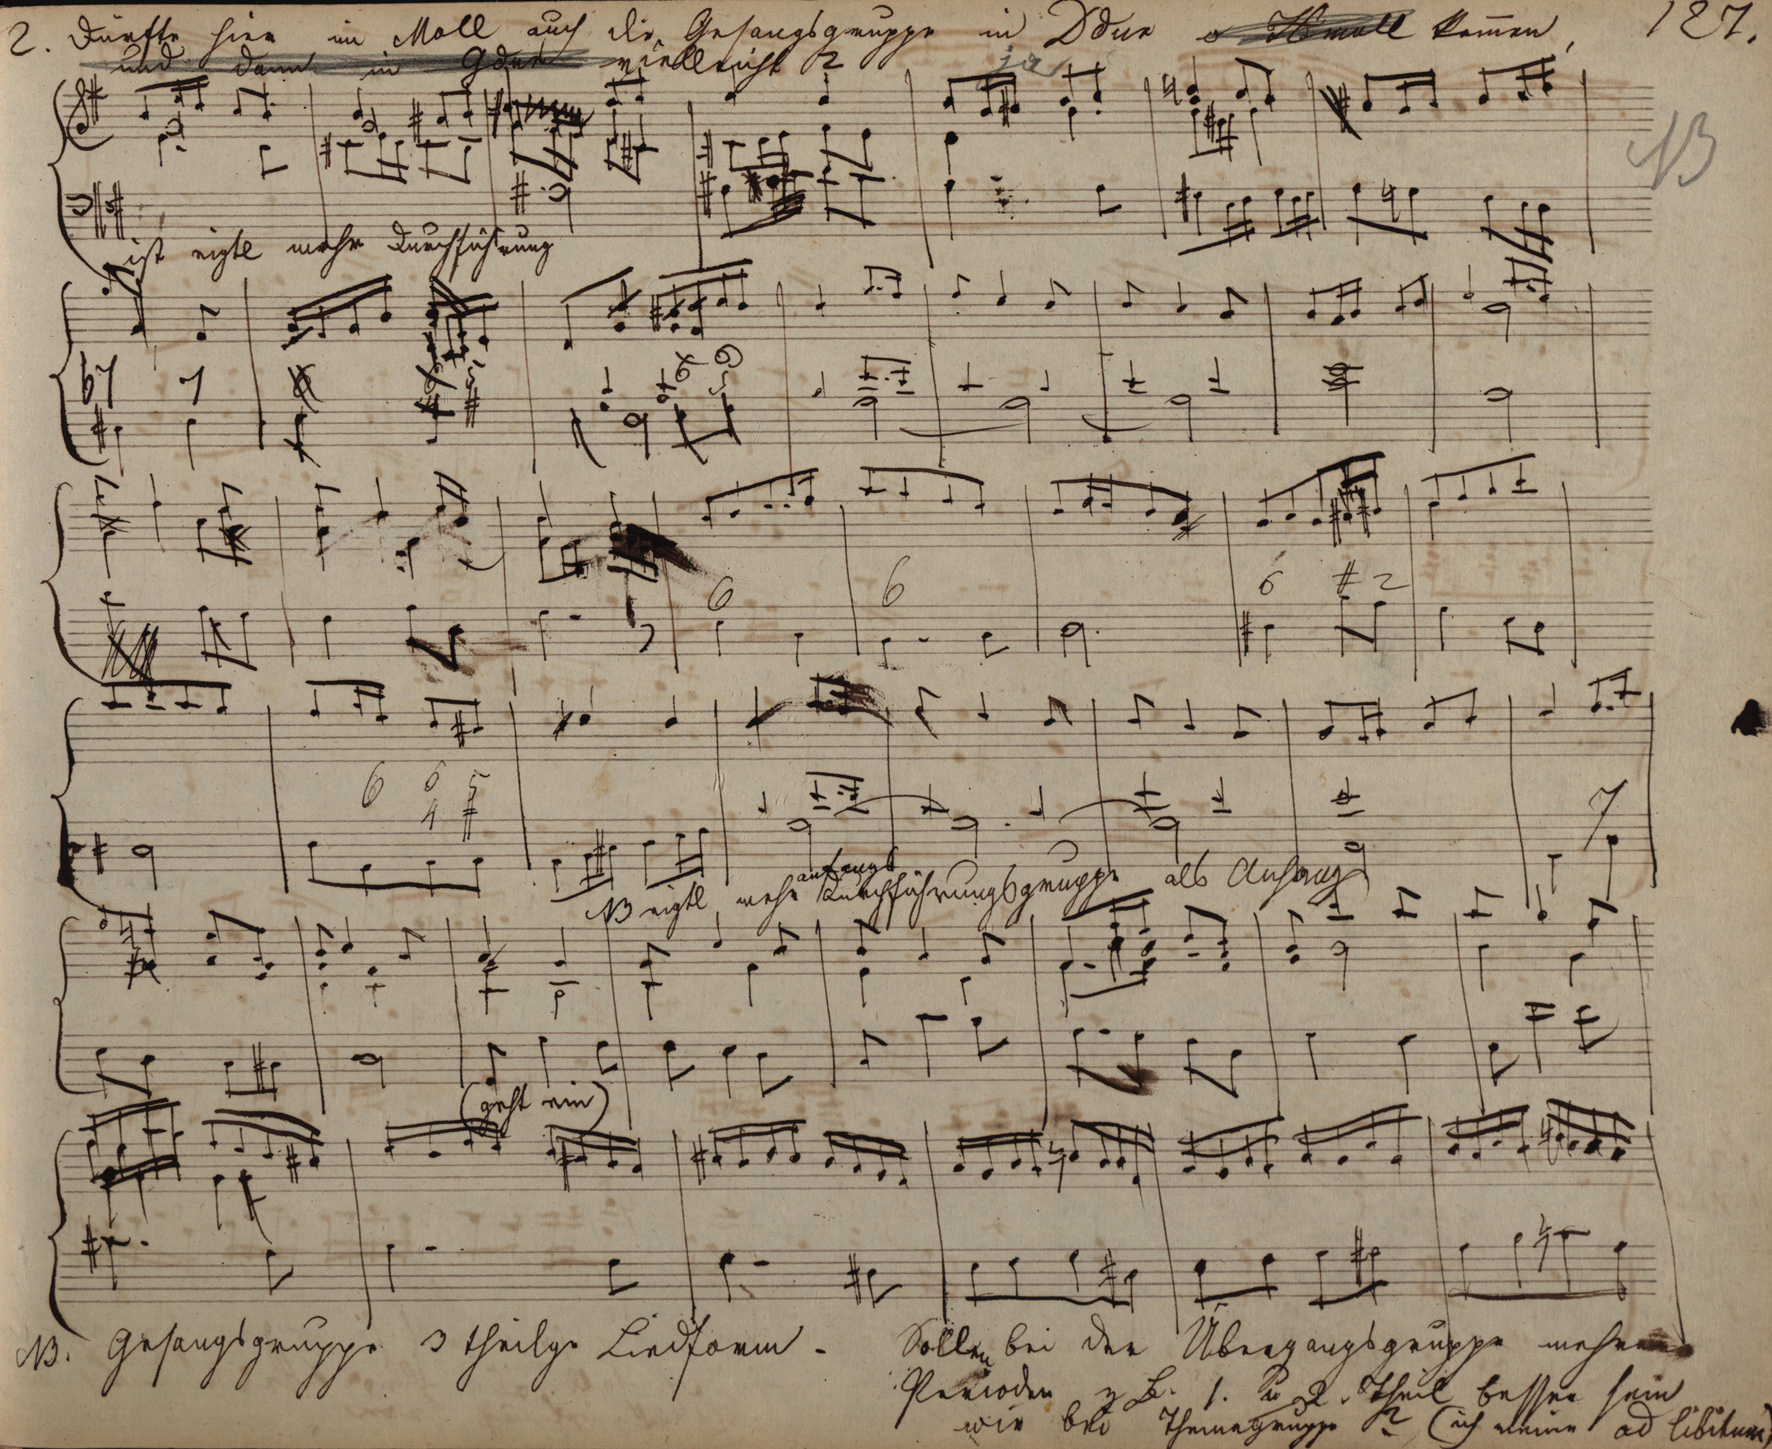 2. Dürfte hier im Moll auch die Gesangsgruppe in Ddur o Hmoll kom̄en, 127.
und dann in Gdur vielleicht ?
ja
NB
ist eigtl mehr Durchführung
67 7
6
6 6
6 # 2
6 6 5
4 #
7
anfangs
NB eigtl mehr Durchführungsgruppe als Anhang
(geht ein)
NB. Gesangsgruppe 3 theilge Liedform. Sollen bei der Übergangsgruppe mehrere
Perioden z B. 1. u 2. Theil besser sein
wie bei Themagruppe ? (ich meine ad libitum)